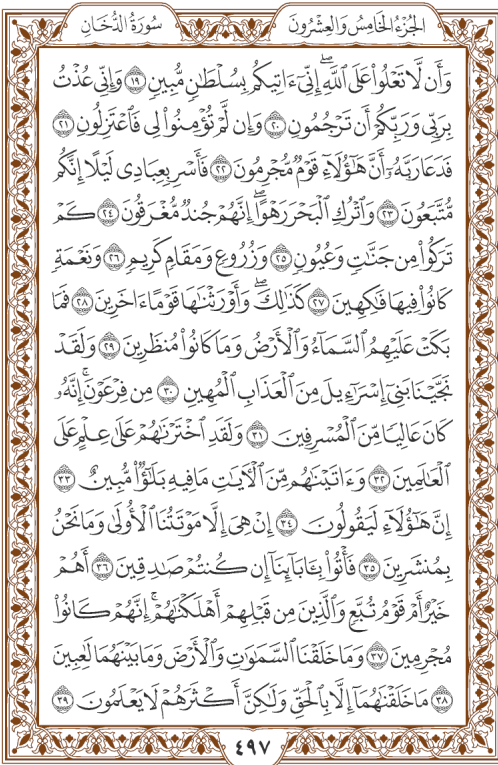 سُورَةُ الدُّخَانِ
الجُزْءُ الخَامِسُ وَالعِشْرُونَ
وَأَن لَّا تَعْلُوا۟ عَلَى ٱللَّهِ ۖ إِنِّىٓ ءَاتِيكُم بِسُلْطَـٰنٍ مُّبِينٍ ١٩ وَإِنِّى عُذْتُ
بِرَبِّى وَرَبِّكُمْ أَن تَرْجُمُونِ ٢٠ وَإِن لَّمْ تُؤْمِنُوا۟ لِى فَٱعْتَزِلُونِ ٢١
فَدَعَا رَبَّهُۥٓ أَنَّ هَـٰٓؤُلَآءِ قَوْمٌ مُّجْرِمُونَ ٢٢ فَأَسْرِ بِعِبَادِى لَيْلًا إِنَّكُم
مُّتَّبَعُونَ ٢٣ وَٱتْرُكِ ٱلْبَحْرَ رَهْوًا ۖ إِنَّهُمْ جُندٌ مُّغْرَقُونَ ٢٤ كَمْ
تَرَكُوا۟ مِن جَنَّـٰتٍ وَعُيُونٍ ٢٥ وَزُرُوعٍ وَمَقَامٍ كَرِيمٍ ٢٦ وَنَعْمَةٍ
كَانُوا۟ فِيهَا فَـٰكِهِينَ ٢٧ كَذَٰلِكَ ۖ وَأَوْرَثْنَـٰهَا قَوْمًا ءَاخَرِينَ ٢٨ فَمَا
بَكَتْ عَلَيْهِمُ ٱلسَّمَآءُ وَٱلْأَرْضُ وَمَا كَانُوا۟ مُنظَرِينَ ٢٩ وَلَقَدْ
نَجَّيْنَا بَنِىٓ إِسْرَٰٓءِيلَ مِنَ ٱلْعَذَابِ ٱلْمُهِينِ ٣٠ مِن فِرْعَوْنَ ۚ إِنَّهُۥ
كَانَ عَالِيًا مِّنَ ٱلْمُسْرِفِينَ ٣١ وَلَقَدِ ٱخْتَرْنَـٰهُمْ عَلَىٰ عِلْمٍ عَلَى
ٱلْعَـٰلَمِينَ ٣٢ وَءَاتَيْنَـٰهُم مِّنَ ٱلْـَٔايَـٰتِ مَا فِيهِ بَلَـٰٓؤٌا۟ مُّبِينٌ ٣٣
إِنَّ هَـٰٓؤُلَآءِ لَيَقُولُونَ ٣٤ إِنْ هِىَ إِلَّا مَوْتَتُنَا ٱلْأُولَىٰ وَمَا نَحْنُ
بِمُنشَرِينَ ٣٥ فَأْتُوا۟ بِـَٔابَآئِنَآ إِن كُنتُمْ صَـٰدِقِينَ ٣٦ أَهُمْ
خَيْرٌ أَمْ قَوْمُ تُبَّعٍ وَٱلَّذِينَ مِن قَبْلِهِمْ ۚ أَهْلَكْنَـٰهُمْ ۖ إِنَّهُمْ كَانُوا۟
مُجْرِمِينَ ٣٧ وَمَا خَلَقْنَا ٱلسَّمَـٰوَٰتِ وَٱلْأَرْضَ وَمَا بَيْنَهُمَا لَـٰعِبِينَ
٣٨ مَا خَلَقْنَـٰهُمَآ إِلَّا بِٱلْحَقِّ وَلَـٰكِنَّ أَكْثَرَهُمْ لَا يَعْلَمُونَ ٣٩
٤٩٧